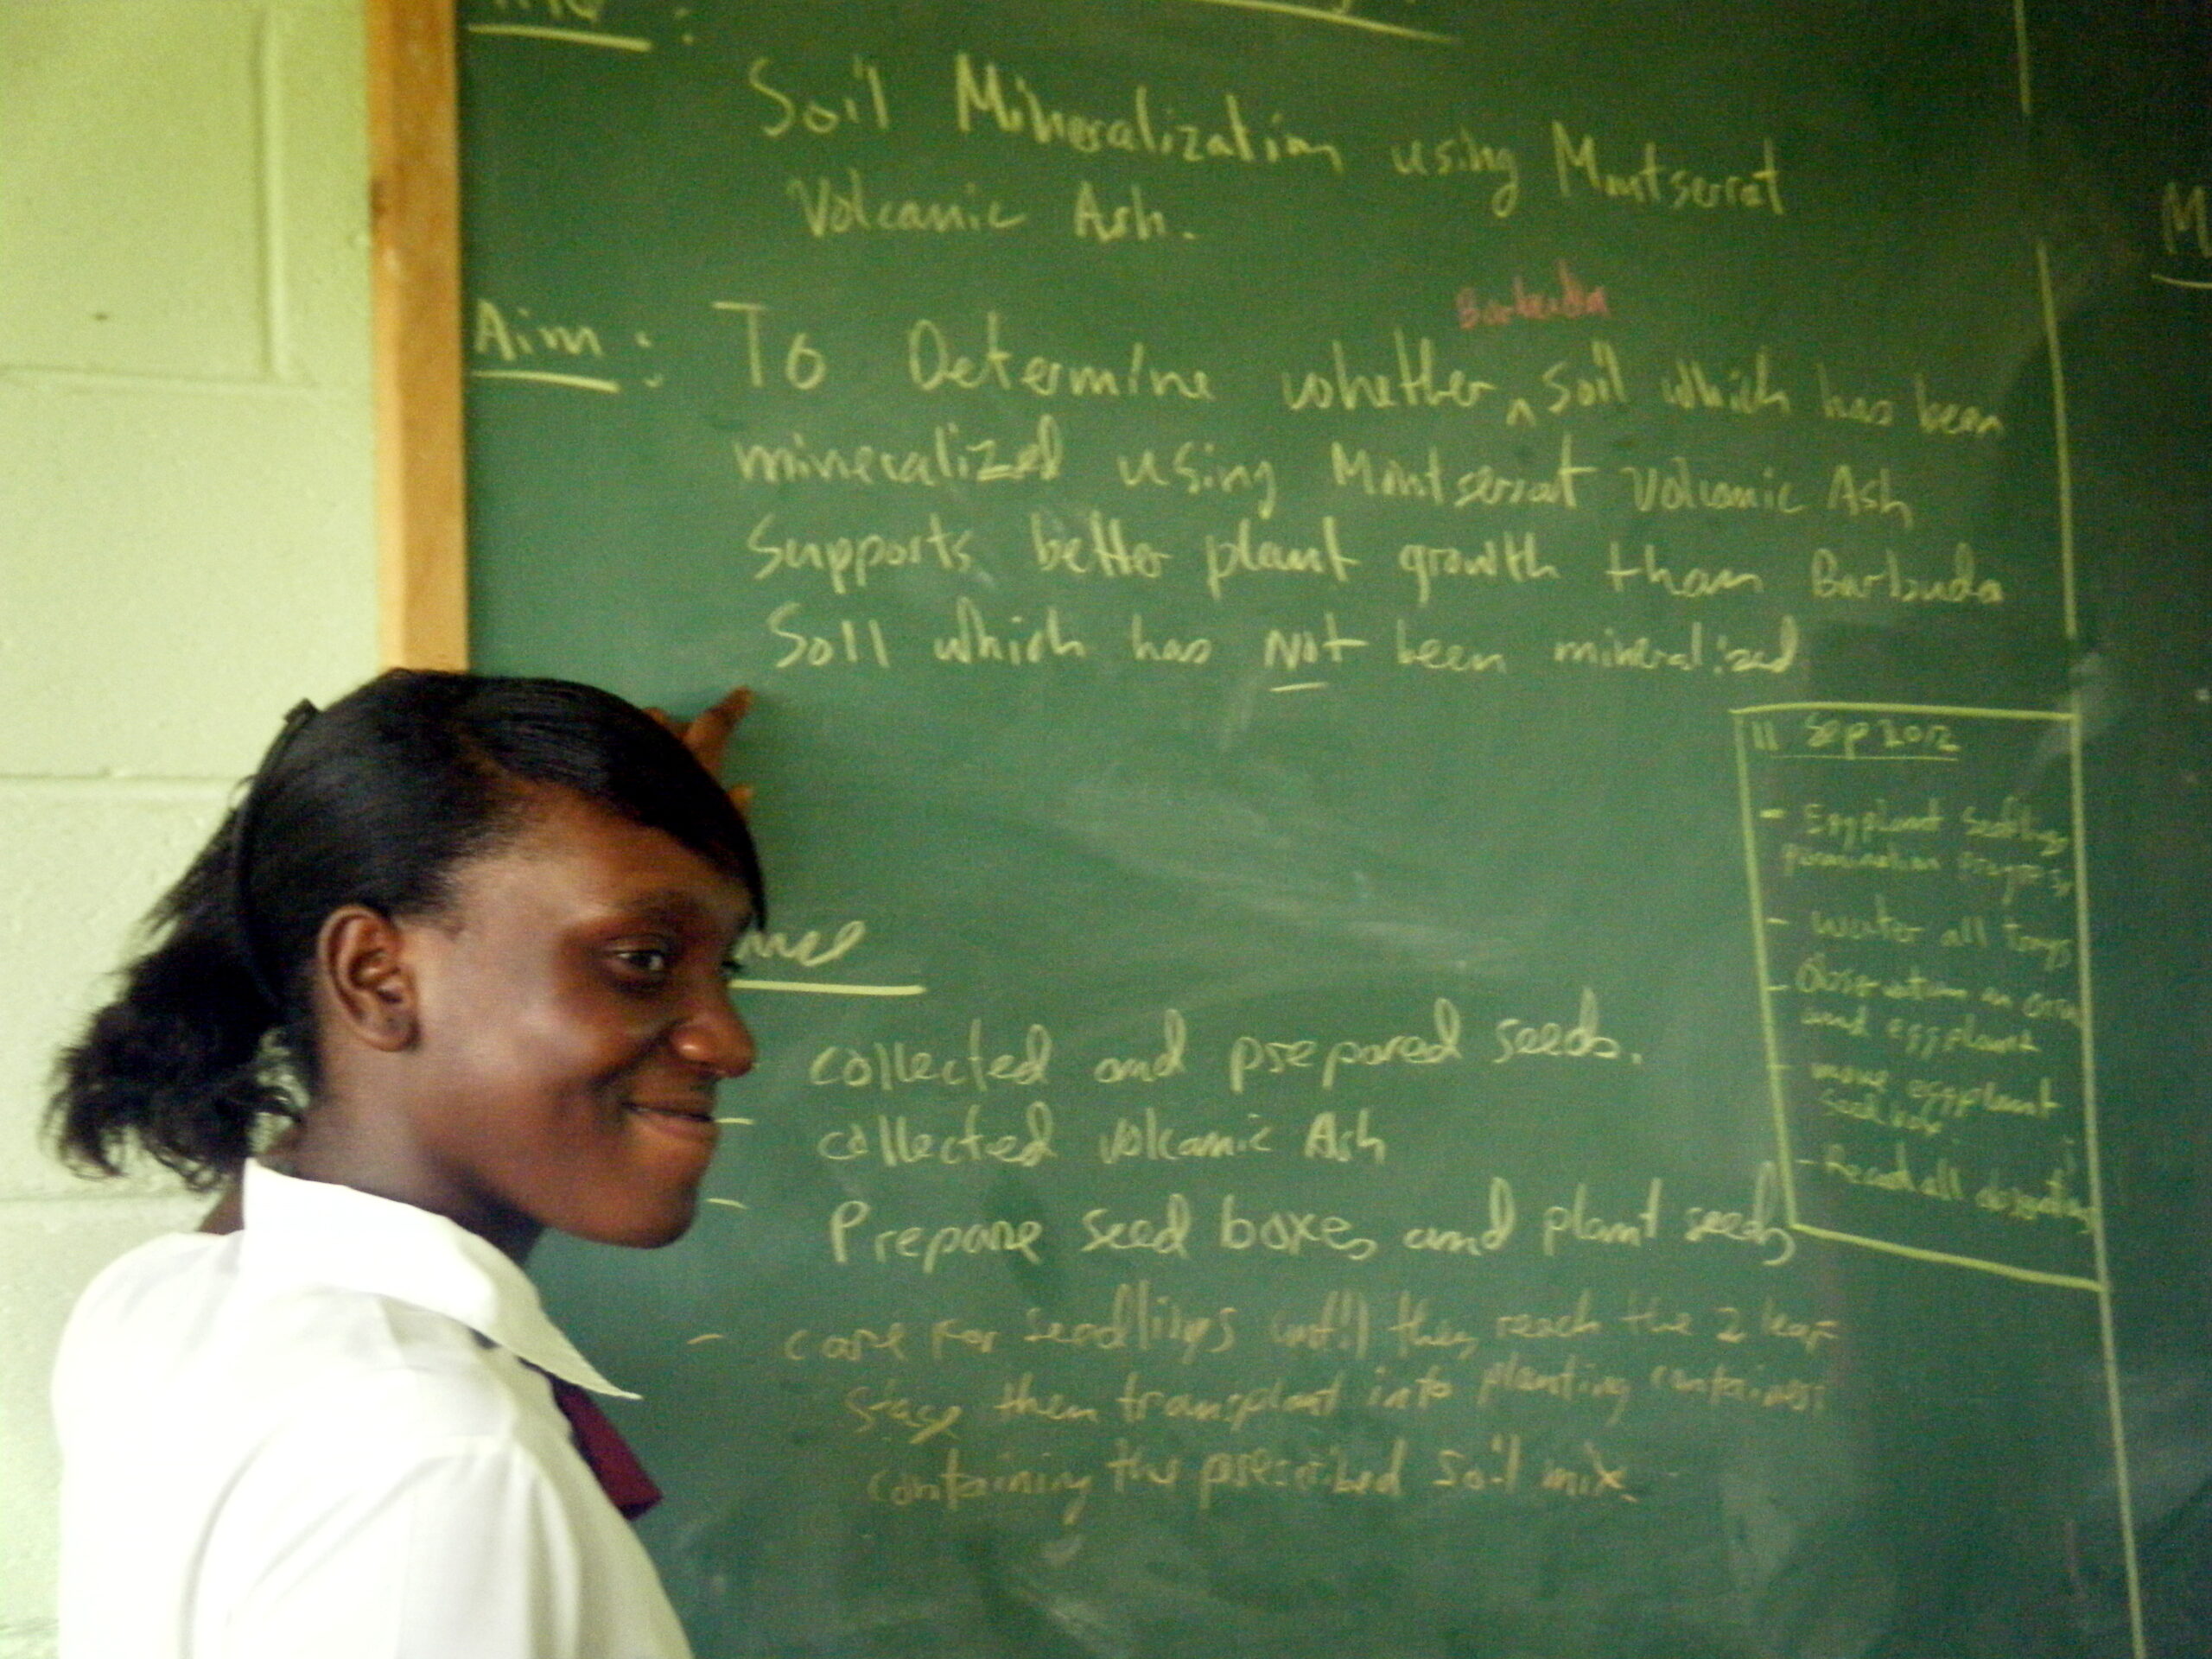 Soil Mineralization using Montserrat
Volcanic Ash.
Barbuda
Aim : To Determine whether ^ soil which has been
mineralized using Montserrat Volcanic Ash
Supports better plant growth than Barbuda
Soil which has Not been mineralized
11 Sep 2012
- Eggplant
germination progress
- water all trays
- Observation on
and eggplant
- move eggplant
seed box.
- Read all
collected and prepared seeds.
- collected volcanic Ash
- Prepare seed boxes and plant seeds
- care for seedlings until they reach the 2 leaf
stage then transplant into planting containers
containing the prescribed soil mix.
M